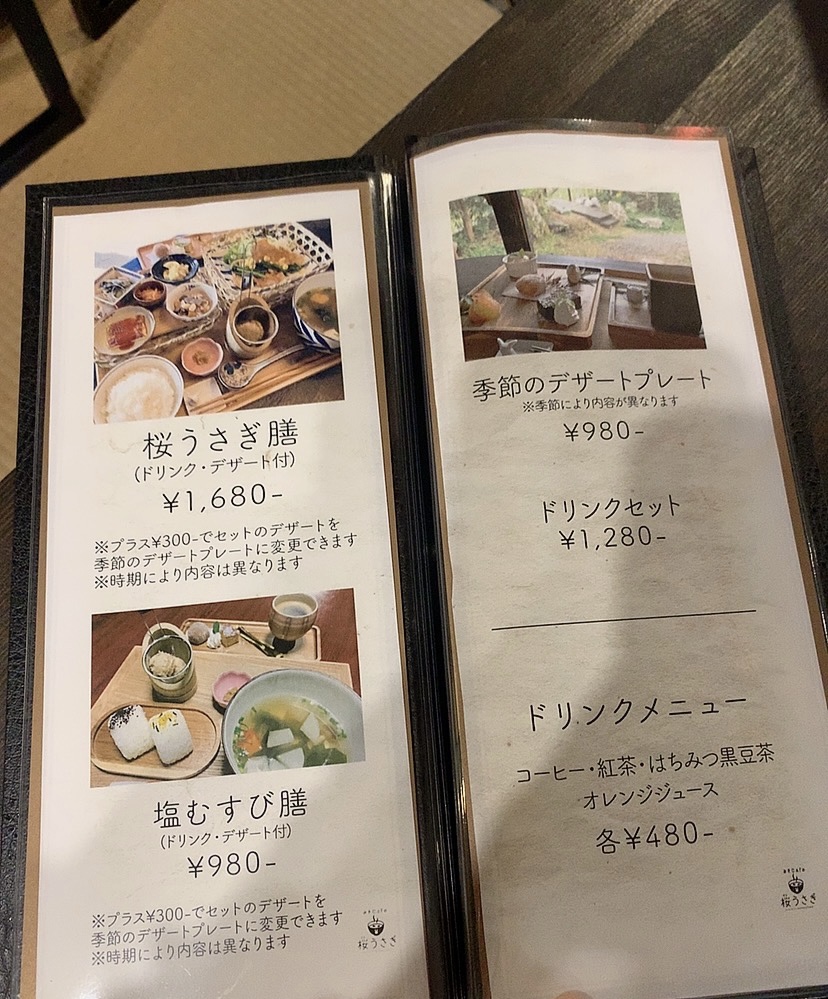 桜うさぎ膳
(ドリンク・デザート付)
¥1,680-
※プラス¥300-でセットのデザートを
季節のデザートプレートに変更できます
※時期により内容は異なります
塩むすび膳
(ドリンク・デザート付)
¥980-
※プラス¥300-でセットのデザートを
季節のデザートプレートに変更できます
※時期により内容は異なります
桜うさぎ
季節のデザートプレート
※季節により内容が異なります
¥980-
ドリンクセット
¥1,280-
ドリンクメニュー
コーヒー・紅茶・はちみつ黒豆茶
オレンジジュース
各¥480-
桜うさぎ